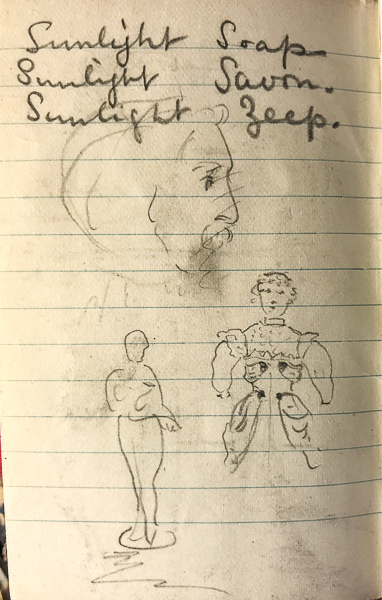 Sunlight Soap.
Sunlight Savon.
Sunlight Zeep.